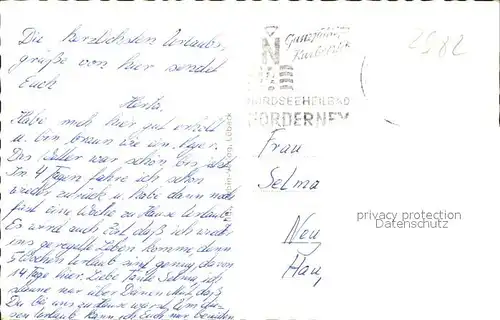 Die herzlichsten Urlaubs-
grüße von hier sendet
Euch
Herta.
Habe mich hier gut erholt
u. bin braun wie ein Neger.
Das Wetter war schön bis jetzt.
In 4 Tagen fahre ich schon
wieder zurück u. habe dann noch
fast eine Woche zu Hause Urlaub.
Es wird auch Zeit, daß ich wieder
ins geregelte Leben komme, denn
5 Wochen Urlaub sind genug, davon
14 Tage hier. Liebe Tante Selma, ich
staune nur über Deinen Mut, daß
Du bei uns zu Hause warst. Um
sen Urlaub kann ich Euch nur
Lübeck
Ganzjährig
Kurbetrieb
NORDSEEHEILBAD
NORDERNEY
2982
Frau
Selma
Neu
Hau,
privacy protection
Datenschutz